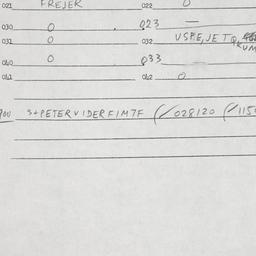 021 FREJEK 022 0
030 0 023 —
031 0 032 USPE, JE TQ,
040 0 033
041 042 0
900 S+PETERVIDERFIM7F (/028120 (/115